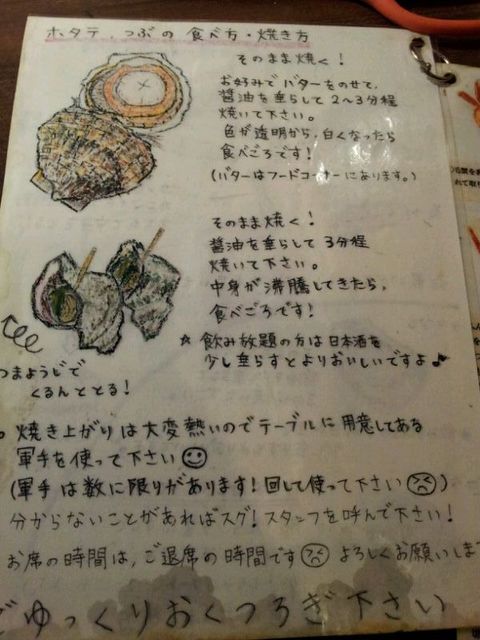 ホタテ、つぶの 食べ方・焼き方
そのまま焼く!
お好みでバターをのせて、
醤油を垂らして2〜3分程
焼いて下さい。
色が透明から、白くなったら
食べごろです!
(バターはフードコーナーにあります。)
そのまま焼く!
醤油を垂らして3分程
焼いて下さい。
中身が沸騰してきたら、
食べごろです!
☆ 飲み放題の方は日本酒を
少し垂らすとよりおいしいですよ♪
つまようじで
くるんととる!
焼き上がりは大変熱いのでテーブルに用意してある
軍手を使って下さい
(軍手は数に限りがあります!回して使って下さい)
分からないことがあればスグ!スタッフを呼んで下さい!
お席の時間は、ご退席の時間です よろしくお願いしま
ごゆっくりおくつろぎ下さい